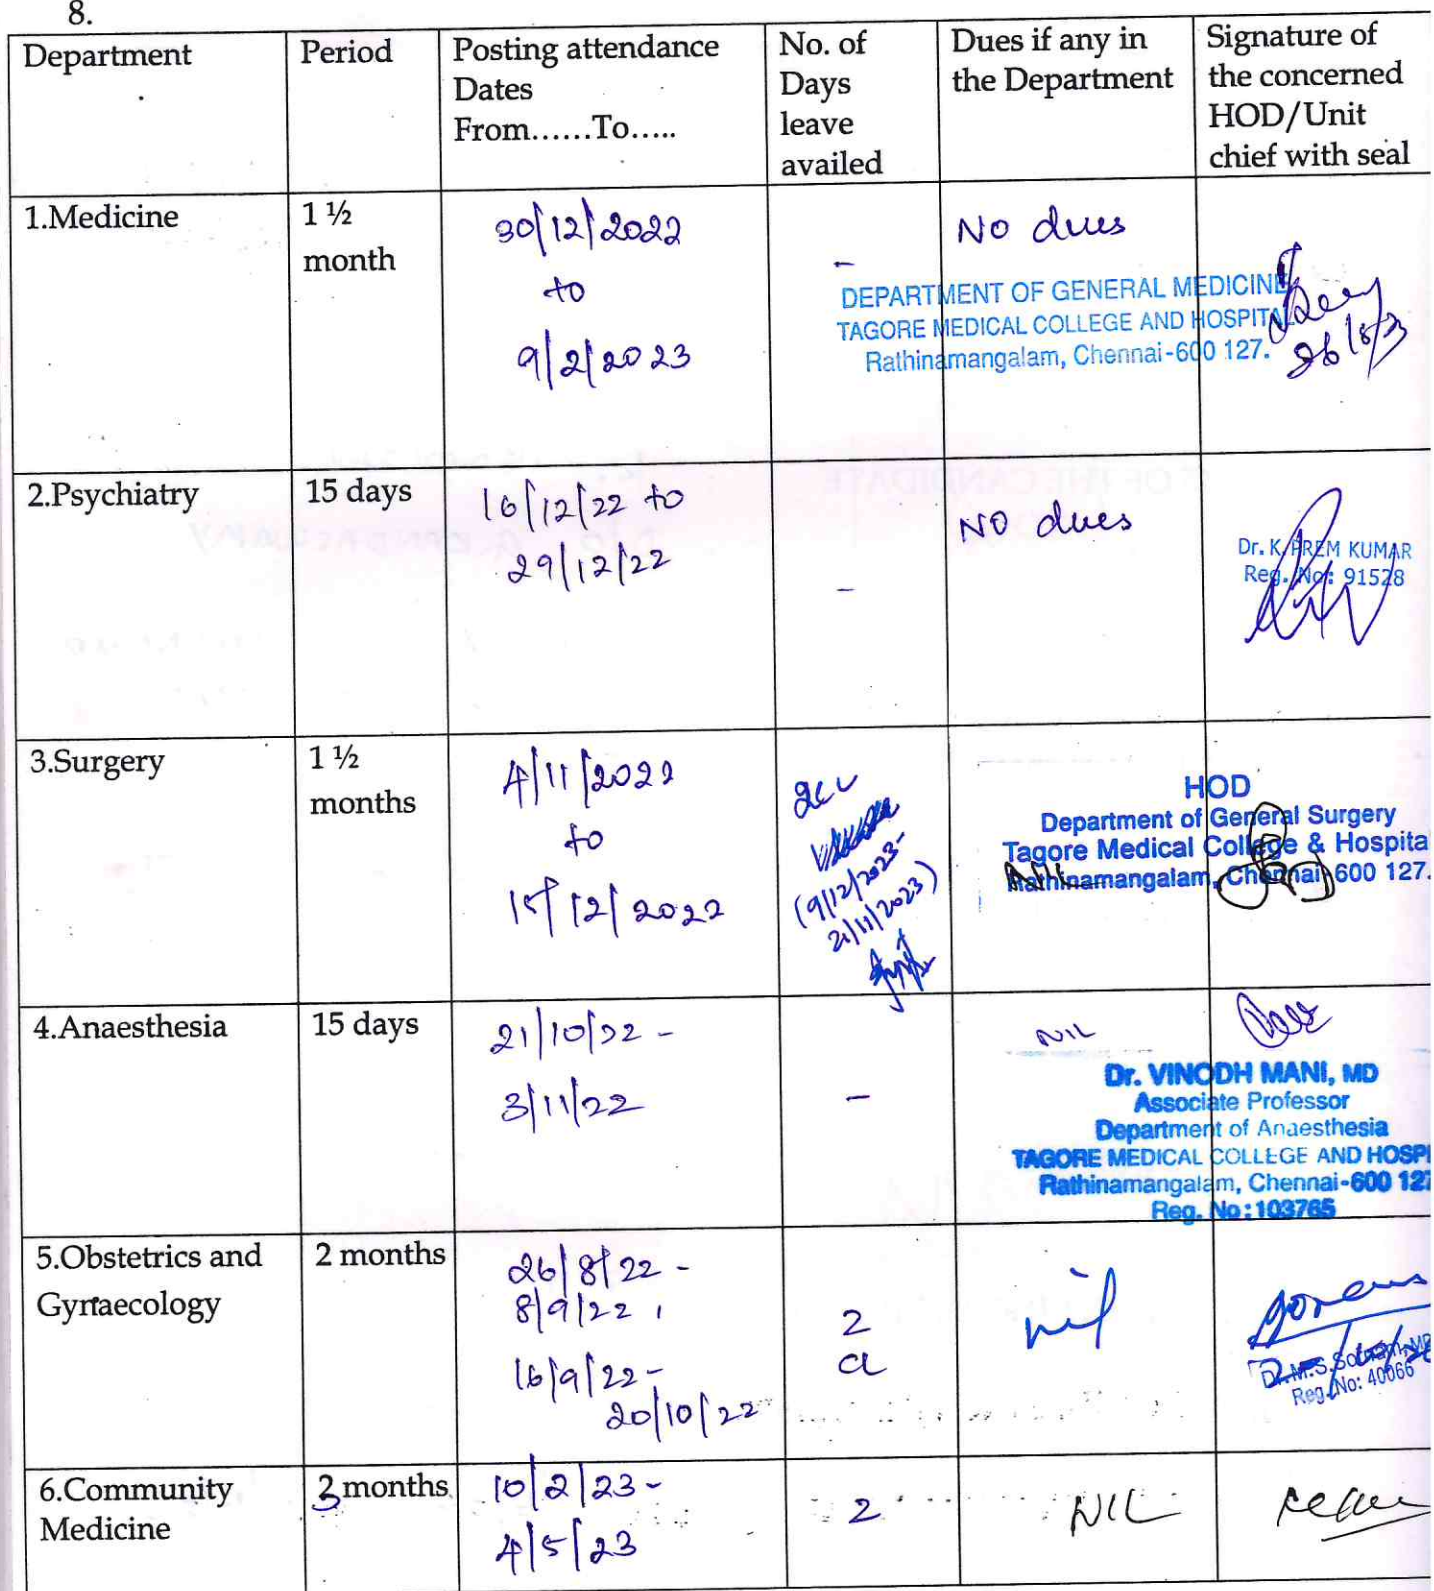 8.
Department
Period
Posting attendance
Dates
From......To.....
No. of
Days
leave
availed
Dues if any in
the Department
Signature of
the concerned
HOD/Unit
chief with seal
1.Medicine
1 ½
month
30/12/2022
to
9/2/2023
-
No dues
DEPARTMENT OF GENERAL MEDICINE
TAGORE MEDICAL COLLEGE AND HOSPITAL
Rathinamangalam, Chennai-600 127.
2.Psychiatry
15 days
16/12/22 to
29/12/22
-
NO dues
Dr. K. PREM KUMAR
Reg. No: 91528
3.Surgery
1 ½
months
4/11/2022
to
15/12/2022
(9/12/2023-
21/11/2023)
HOD
Department of General Surgery
Tagore Medical College & Hospita
Rathinamangalam, Chennai 600 127.
4.Anaesthesia
15 days
21/10/22 -
3/11/22
-
NIL
Dr. VINODH MANI, MD
Associate Professor
Department of Anaesthesia
TAGORE MEDICAL COLLEGE AND HOSPI
Rathinamangalam, Chennai-600 127
Reg. No:103765
5.Obstetrics and
Gynaecology
2 months
26/8/22 -
8/9/22 ,
16/9/22-
20/10/22
2
CL
nil
Reg. No: 40066
6.Community
Medicine
3 months
10/2/23-
4/5/23
2
NIL